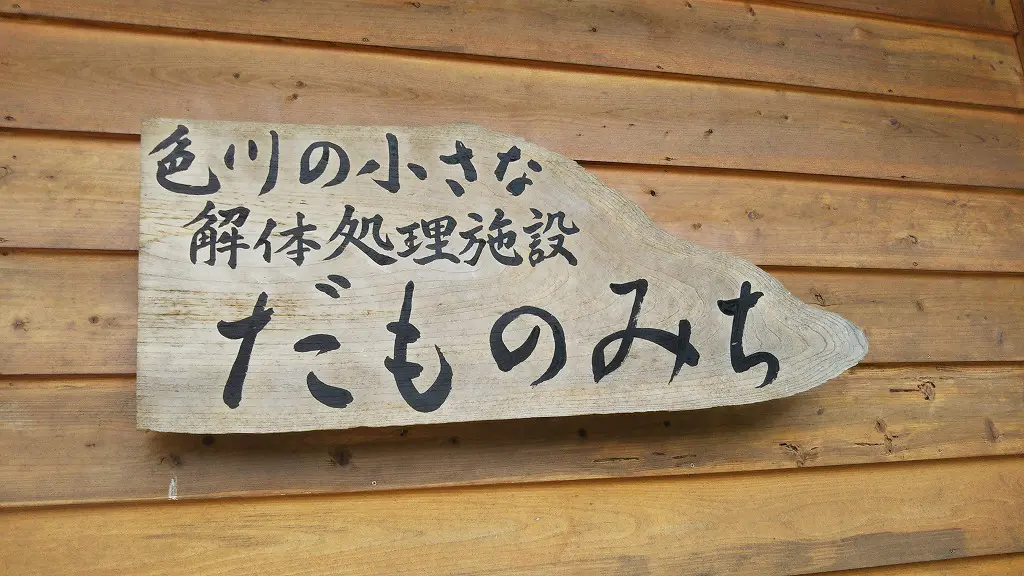 色川の小さな
解体処理施設
だものみち